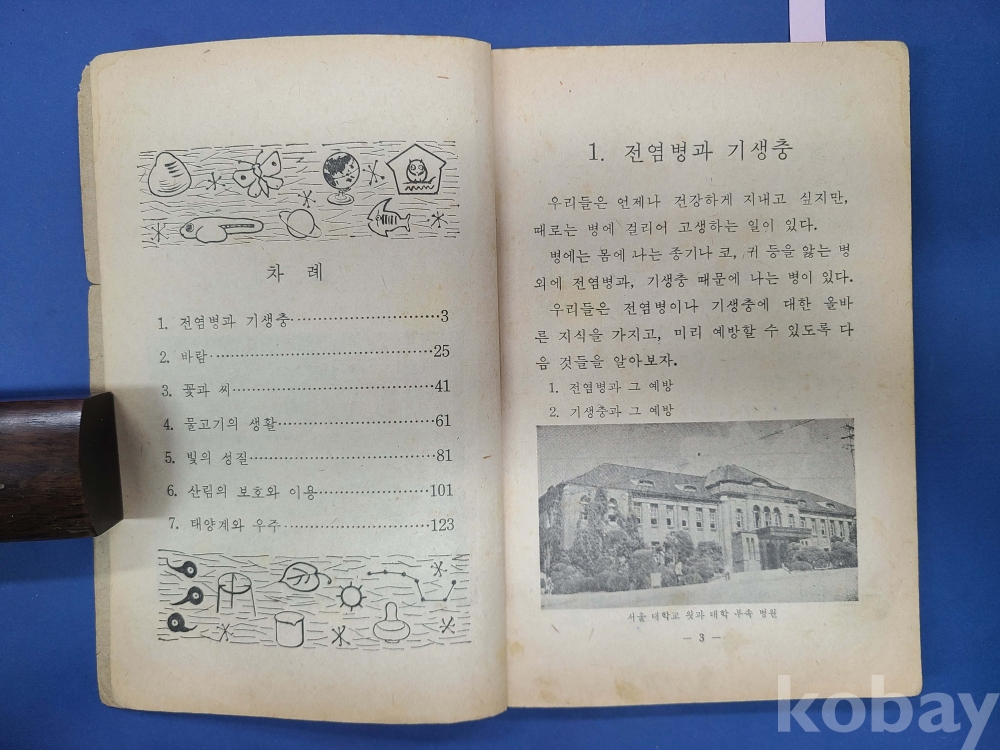 차 례
1. 전염병과 기생충··························3
2. 바람··························25
3. 꽃과 씨··························41
4. 물고기의 생활··························61
5. 빛의 성질··························81
6. 산림의 보호와 이용··························101
7. 태양계와 우주··························123
1. 전염병과 기생충
우리들은 언제나 건강하게 지내고 싶지만,
때로는 병에 걸리어 고생하는 일이 있다.
병에는 몸에 나는 종기나 코, 귀 등을 앓는 병
외에 전염병과, 기생충 때문에 나는 병이 있다.
우리들은 전염병이나 기생충에 대한 올바
른 지식을 가지고, 미리 예방할 수 있도록 다
음 것들을 알아보자.
1. 전염병과 그 예방
2. 기생충과 그 예방
서울 대학교 의과 대학 부속 병원
— 3 —
kobay